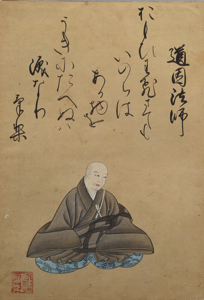 道因法師
おもひわひさても
いのちは
ある物を
うきにたへぬハ
涙なり